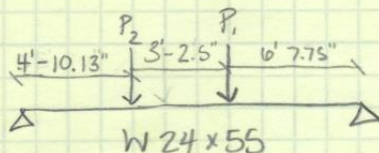 P2 P1
4'-10.13" 3'-2.5" 6' 7.75"
W 24 x 55